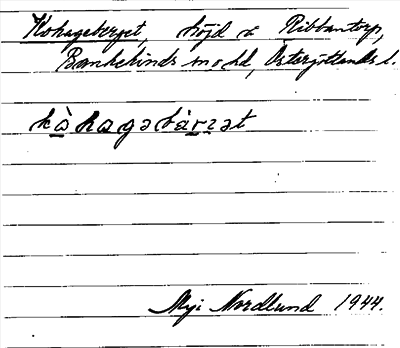 Kohageberget, höjd å Ribbantorp,
Bankekinds sn o hd, Östergötlands l.
kàhagəbàrɪət
Myi Nordlund 1944.